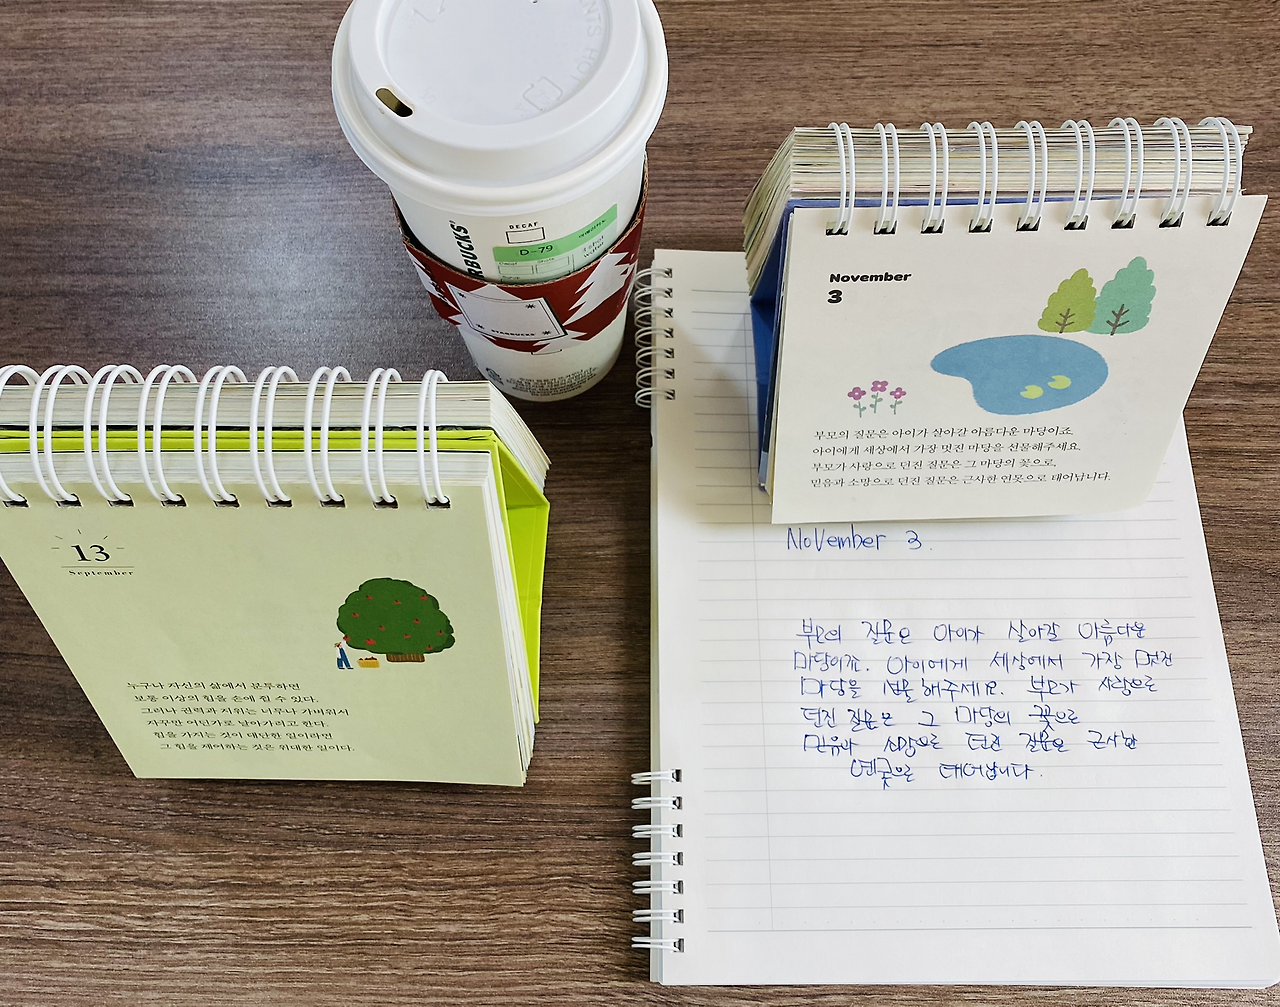 STARBUCKS
DECAF
D-79
STARBUCKS
November
3
부모의 질문은 아이가 살아갈 아름다운 마당이죠.
아이에게 세상에서 가장 멋진 마당을 선물해주세요.
부모가 사랑으로 던진 질문은 그 마당의 꽃으로,
믿음과 소망으로 던진 질문은 근사한 연못으로 태어납니다.
13
September
누구나 자신의 삶에서 분투하면
보통 이상의 힘을 손에 쥘 수 있다.
그러나 권력과 지위는 너무나 가벼워서
자꾸만 어딘가로 날아가려고 한다.
힘을 가지는 것이 대단한 일이라면
그 힘을 제어하는 것은 위대한 일이다.
November 3.
부모의 질문은 아이가 살아갈 아름다운
마당이죠. 아이에게 세상에서 가장 멋진
마당을 선물해주세요. 부모가 사랑으로
던진 질문은 그 마당의 꽃으로
믿음과 소망으로 던진 질문은 근사한
연못으로 태어납니다.